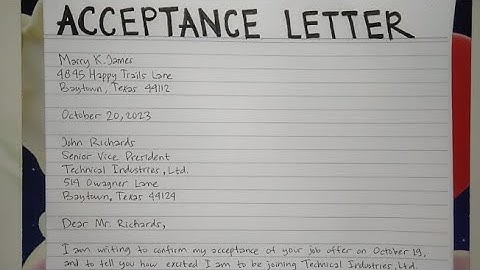 ACCEPTANCE LETTER
Marry K. James
4845 Happy Trails Lane
Baytown, Texas 44112
October 20, 2023
John Richards
Senior Vice President
Technical Industries, Ltd.
519 Owagner Lane
Baytown, Texas 44124
Dear Mr. Richards,
I am writing to confirm my acceptance of your job offer on October 19,
and to tell you how excited I am to be joining Technical Industries, Ltd.